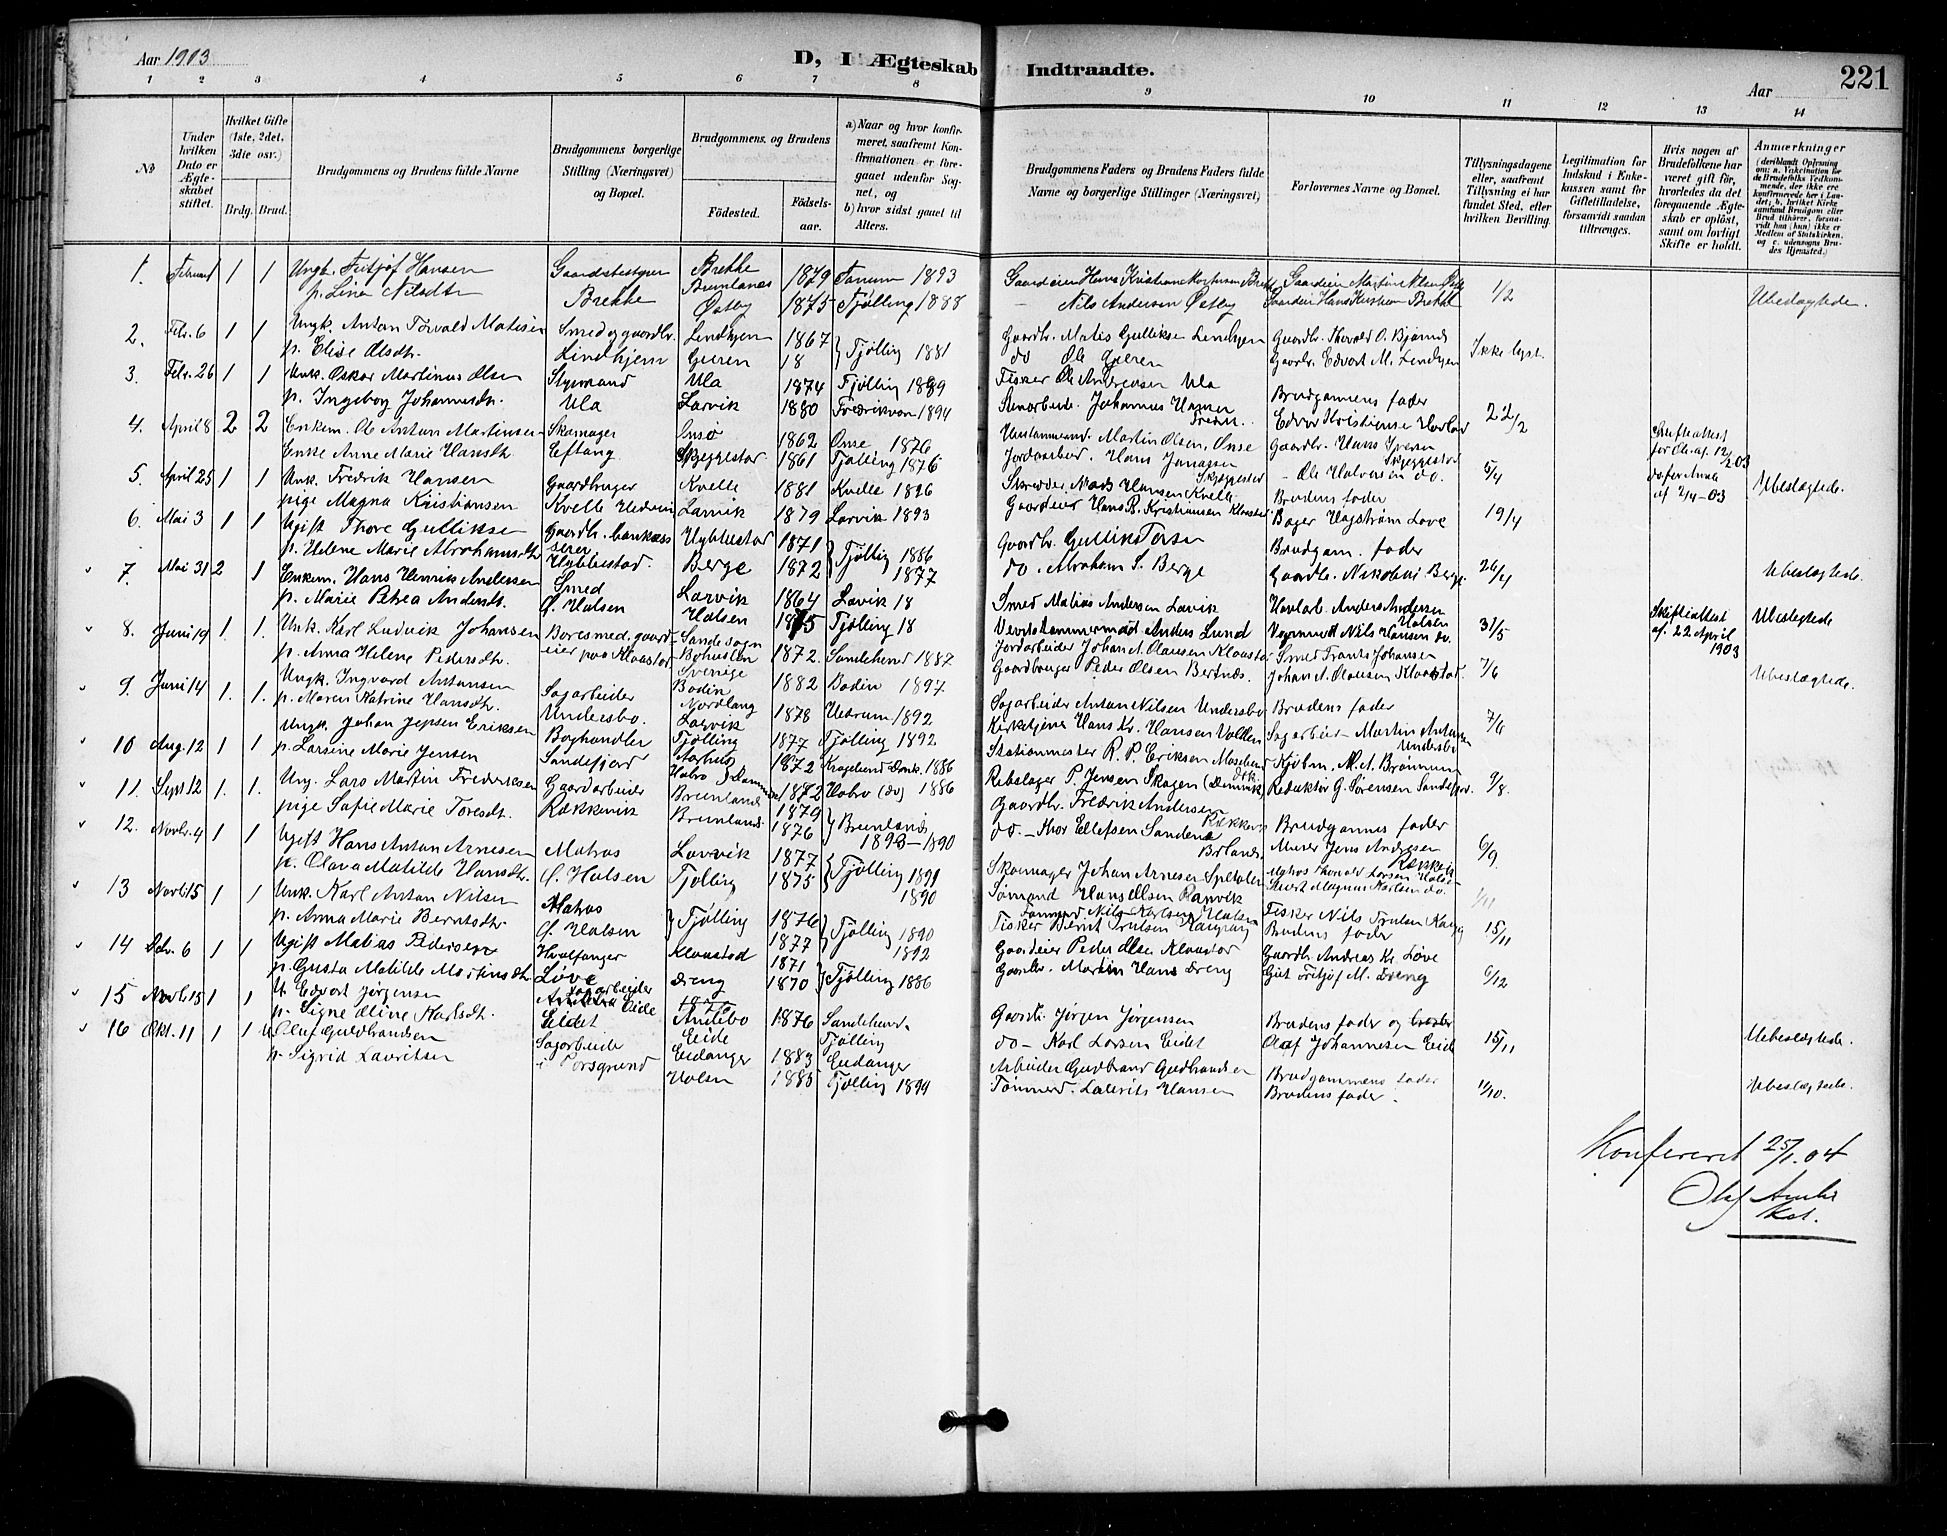 Aar 1903
D, I Ægteskab Indtraadte.
Aar
221
1 2 3 4 5 6 7 8 9 10 11 12 13 14
No
Under hvilken Dato er Ægteskabet stiftet.
Hvilket Gifte (1ste, 2det, 3die osv.)
Brdg. Brud.
Brudgommens og Brudens fulde Navne
Brudgommens borgerlige Stilling (Næringsvei) og Bopæl.
Brudgommens og Brudens
Födested.
Födselsaar.
a) Naar og hvor konfirmeret, saafremt Konfirmationen er foregaaet udenfor Sognet, og
b) hvor sidst gaaet til Alters.
Brudgommens Faders og Brudens Faders fulde Navne og borgerlige Stillinger (Næringsvei)
Forlovernes Navne og Bopæl.
Tillysningsdagene eller, saafremt Tillysning ei har fundet Sted, efter hvilken Bevilling.
Legitimation for Indskud i Enkekassen samt for Giftetilladelse, forsaavidt saadan tiltrænges.
Hvis nogen af Brudefolkene har været gift før, hvorledes da det foregaaende Ægteskab er oplöst, samt om lovligt Skifte er holdt.
Anmærkninger
(deriblandt Oplysning om: a. Vakcination for de Brudefolks Vedkommende, der ikke ere konfirmerede her i Landet; b. hvilket Kirkesamfund Brudgom eller Brud tilhører, forsaavidt han (hun) ikke er Medlem af Statskirken, og c. udensogns Brudes Hjemsted.)
1. Februar 1 1 Ungk. Fritjof Hansen Gaardbestyrer Brekke Brunlanes 1879 Tanum 1893 Gaardeier Hans Kristian Brekke 1/2
p. Lina Nilsdtr Brekke Østby 1875 Tjølling 1888 Nils Andersen Østby Ubeslægtede.
2. Febr. 6 1 1 Ungk. Anton Torvald Matisen Smed og gaardbr. Lindhjem 1867 Gaardbr. Matis Gulliksen Lindhjem Gaardbr. Thorvald O. Bjønnes Ikke lyst.
p. Elise Olsdtr. Lindhjem Guren 18 Tjølling 1881 do Ole Gjeren Gaardbr. Edvart M. Lindhjem
3. Febr. 26 1 1 Unk. Oskar Martinus Olsen Styrmand Ula 1874 Tjølling 1889 Fisker Ole Andreasen Ula Brudgommens fader 22/2
p. Ingeborg Johannesdtr. Ula Larvik 1880 Fredriksværn 1894 Stenarbeide. Johannes Hansen
4. April 8 2 2 Enkem. Ole Anton Martinsen Skomager Onsø 1862 Onsø 1876 Martin Olsen, Onsø Gaardbr. Hans Iversen Skjeggestad 5/4 Skifteattest for Ole af 12/2 03
Enke Anne Marie Hansdtr. Eftang Skjeggestad 1861 Tjølling 1876 Jordarbeid. Hans Skjeggestad Ole Halvorsen do. do for Anna af 2/4-03
5. April 25 1 1 Unk. Fredrik Hansen Gaardbruger Kvelle 1881 Kvelle 1896 Mads Hansen Kvelle Brudens fader 19/4 Ubeslægtede.
pige Magna Kristiansen Kvelle Hedrum Larvik 1879 Larvik 1893 Gaardeier Hans R. Kristiansen Klaastad Bager Hagstrøm Løve
6. Mai 3 1 1 Ugift Thore Gulliksen Gaardb. bankkasserer Hybbestad 1871 Tjølling 1886 Gaardbr. Gullik Torsen Brudgom. fader 26/4
p. Helene Marie Abrahamsdtr. Hybbestad. Berge 1872 1877 do. Abraham S. Berge Gaardb. Nikolai Berge. Ubeslægtede.
7. Mai 31 2 1 Enkem. Hans Henrik Andersen Smed Larvik 1864 Larvik 18 Smed Matias Andersen Larvik Anders Andersen Halsen 31/5 Skifteattest af 22 April 1903 Ubeslægtede
p. Marie Bthea Andersdtr. Ø. Halsen Halsen 1875 Tjølling 18 Verkstømmermand Anders Lund Nils Hansen do.
8. Juni 19 1. 1. Unk. Karl Ludvik Johansen Boresmed. gaardeier paa Klaastad Sande sogn Bohuslen Sverige 1872. Sandeherred 1887 Jordarbeider Johan A. Olausen Klaastad Smed Frants Johansen 7/6
p. Anna Helene Pedersdtr. Bodin Nordland 1882 Bodin 1897 Gaardbruger Peder Olsen Bertnes. Johan A. Olausen Klaastad. Ubeslægtede.
9. Juni 14 1. 1. Ungk. Ingvard Antonsen Sagarbeider 1878 Hedrum 1892 Sagarbeider Anton Nilsen Undersbo Brudens fader 7/6
p. Maren Katrine Hansdtr. Undersbo. Larvik Tjølling 1877 Tjølling 1892 Kirketjener Hans Kr. Hansen Vallen Sagarbeid. Martin Antonsen Undersbo
10 Aug. 12 1 1 Ungk. Johan Jepsen Eriksen Boghandler Aarhus 1872 Kragelund Dnk. 1886 Stationmester R. P. Eriksen Kjøbm. M. A. Brønnum 9/8.
p. Larsine Marie Jensen Sandefjord Hobro Danmark 1872 Hobro (do) 1886 Rebslager P. Jensen Skagen (Danmark) Redaktør G. Sørensen Sandefjord.
11. Sept. 12 1. 1. Ung. Lars Martin Fredriksen Gaardarbeider Brunlanes 1879 Brunlanes 1893-1890 Gaardbr. Fredrik Andersen Rekkevik Brudgommes fader 6/9
pige Sofie Marie Toresdtr. Rækkevik Brunlanes. 1876 do. - Thor Ellefsen Sanden Brlanes. Murer Jens Andersen Rekkevik
12. Novbr. 4 1 1 Ugift Hans Anton Arnesen Matros Larvik 1877 Tjølling 1891 Skomager Johan Arnesen Matros Thorvald Larsen Halsen 1/11
p. Olava Matilde Hansdtr. Ø. Halsen Tjølling 1875 1890 Sømand Hans Olsen Magnus Karlsen do.
13 Novb. 15 1 1 Unk. Karl Anton Nilsen Matros Tjølling 1876 Tjølling 1890 Tømmerd. Nils Karlsen Halsen Fisker Nils Trulsen 15/11
p. Anna Marie Berntsdtr. Ø. Halsen 1877 1892 Fisker Bernt Trulsen Brudens fader
14 Dcbr. 6 1 1 Ugift Matias Pedersen Hvalfanger Klaastad 1871 Tjølling 1886 Gaardeier Peder Olsen Klaastad Gaardb. Andreas Kr. Løve 6/12
p. Gusta Matilde Martinsdtr. Løve Dreng 1870 Gaardbr. Martin Hans Dreng Gut Fritjof M. Dreng
15 Novb. 15 1 1 U. Edvart Jørgensen sagarbeider Eide Andebo 1876 Sandeherred. Gaardbr. Jørgen Jørgensen Brudens fader og 15/11
p. Signe Oline Karlsdtr. Eidet Eide Tjølling do - Karl Larsen Eidet Olaf Johannesen Eide Ubeslægtede.
16 Okt. 11 1 1 U. Oluf Guldbrandsen Sagarbeide Eidanger 1883 Eidanger Arbeider Gudbrand Gudbrandsen Brudgommens fader 11/10. Ubeslægtede.
p. Sigrid Lauritsen i Porsgrund Halsen 1885 Tjølling 1899 Tømmerd. Laurits Hansen Brudens fader.
Konfereret 25/1.04
Olaf
Kst.